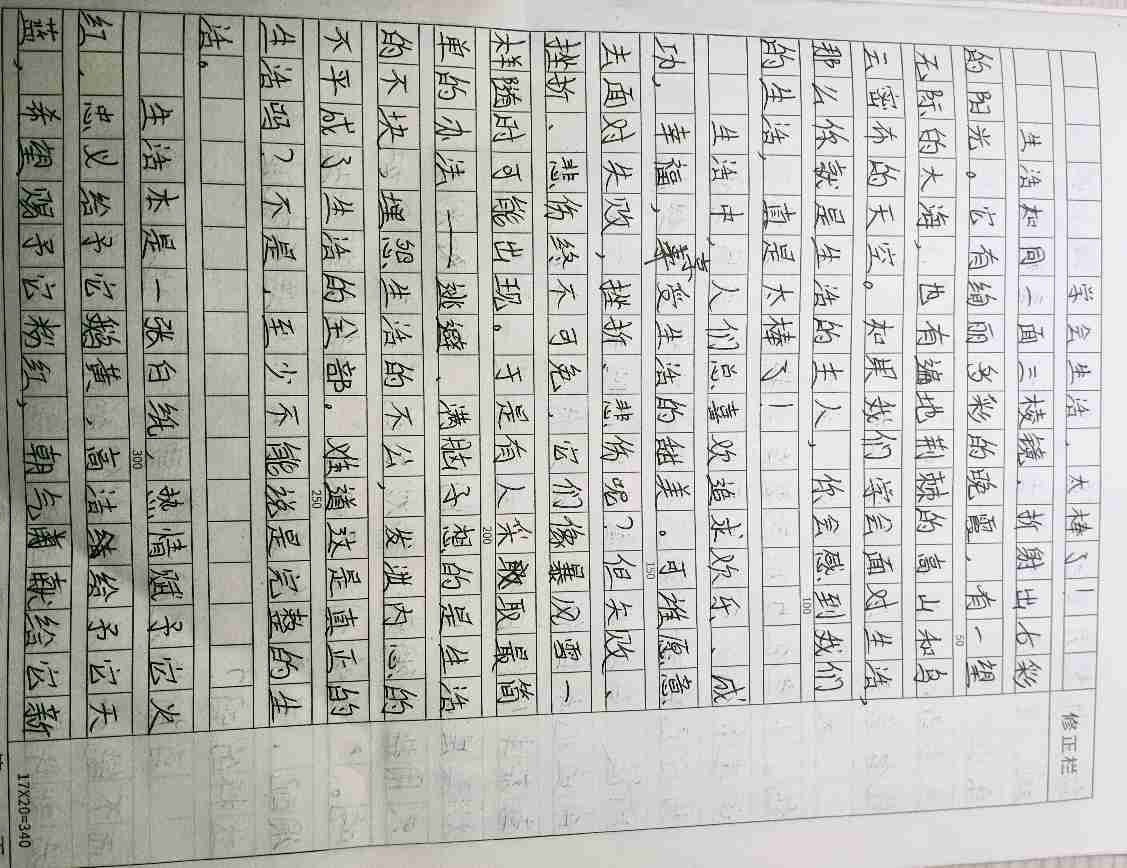 学会生活，太棒了！
修正栏
生活如同一面三棱镜，折射出七彩
的阳光。它有绚丽多彩的晚霞，有一望
无际的大海，也有遍地荆棘的高山和乌
云密布的天空。如果我们学会面对生活，
那么你就是生活的主人，你会感到我们
的生活，真是太棒了！
生活中，人们总喜欢追求欢乐、成
功，幸福，享受生活的甜美。可谁愿意
去面对失败，挫折、悲伤呢？但失败、
挫折、悲伤终不可免，它们像暴风雪一
样随时可能出现。于是有人采取最简
单的办法——逃避、满脑子想的是生活
的不块，埋怨生活的不公，发泄内心的
不平成了生活的全部。难道这是真正的
生活吗？不是，至少不能说是完整的生
活。
生活本是一张白纸，热情赋予它火
红，忠义给予它鹅黄，高洁给予它天
蓝，希望赐予它粉红，朝气贡献给它新
50
100
150
200
250
300
17X20=340